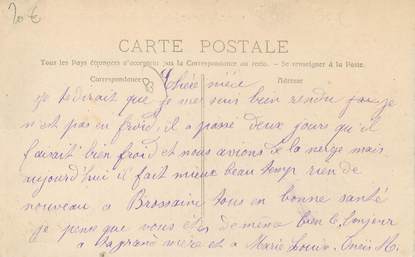 20 €
CARTE POSTALE
Tous les Pays étrangers n'acceptent pas la Correspondance au recto. — Se renseigner à la Poste.
Correspondance
Adresse
Chère mère
je te dirait que je me suis bien rendu
n'est pas eu froid, il a passe deux jours qu'il
faisait bien froid et nous avions de la neige mais
aujourd'hui il fait mieux beau temps rien de
nouveau a tous en bonne santé
je pense que vous êtes de même bien le bonjour
a la grand mère et a Marie Louise.